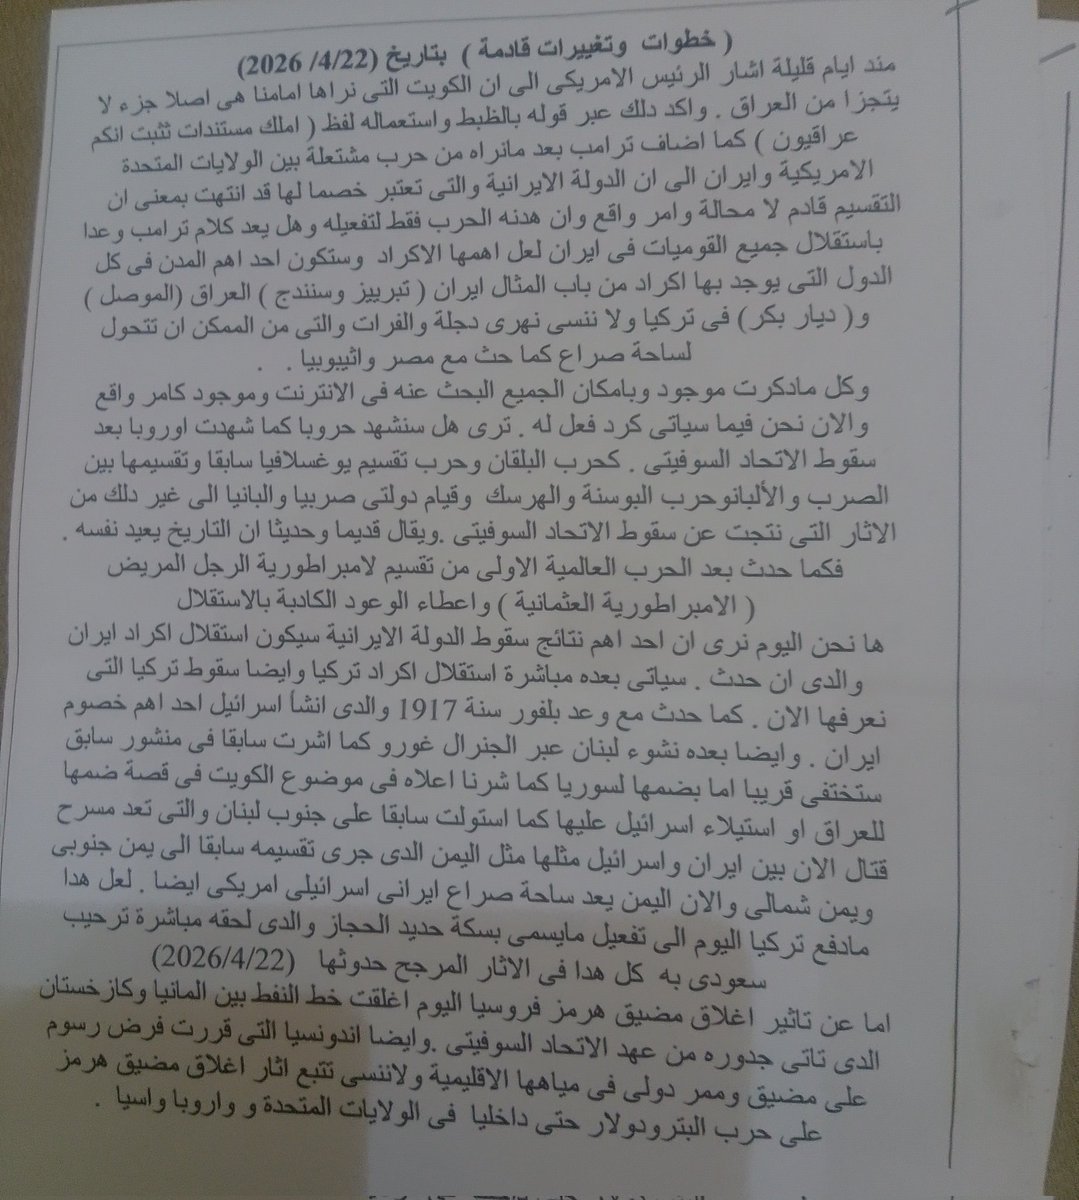 ( خطوات وتغييرات قادمة ) بتاريخ (2026 /4/22)
مند ايام قليلة اشار الرئيس الامريكى الى ان الكويت التى نراها امامنا هى اصلا جزء لا
يتجزا من العراق . واكد دلك عبر قوله بالظبط واستعماله لفظ ( املك مستندات تثبت انكم
عراقيون ) كما اضاف ترامب بعد مانراه من حرب مشتعلة بين الولايات المتحدة
الامريكية وايران الى ان الدولة الايرانية والتى تعتبر خصما لها قد انتهت بمعنى ان
التقسيم قادم لا محالة وامر واقع وان هدنه الحرب فقط لتفعيله وهل يعد كلام ترامب وعدا
باستقلال جميع القوميات فى ايران لعل اهمها الاكراد وستكون احد اهم المدن فى كل
الدول التى يوجد بها اكراد من باب المثال ايران ( تبرييز وسنندج ) العراق (الموصل )
و( ديار بكر) فى تركيا ولا ننسى نهرى دجلة والفرات والتى من الممكن ان تتحول
لساحة صراع كما حث مع مصر واثيبوبيا . .
وكل مادكرت موجود وبامكان الجميع البحث عنه فى الانترنت وموجود كامر واقع
والان نحن فيما سياتى كرد فعل له . ترى هل سنشهد حروبا كما شهدت اوروبا بعد
سقوط الاتحاد السوفيتى . كحرب البلقان وحرب تقسيم يوغسلافيا سابقا وتقسيمها بين
الصرب والألبانوحرب البوسنة والهرسك وقيام دولتى صربيا والبانيا الى غير دلك من
الاثار التى نتجت عن سقوط الاتحاد السوفيتى .ويقال قديما وحديثا ان التاريخ يعيد نفسه .
فكما حدث بعد الحرب العالمية الاولى من تقسيم لامبراطورية الرجل المريض
( الامبراطورية العثمانية ) واعطاء الوعود الكادبة بالاستقلال
ها نحن اليوم نرى ان احد اهم نتائج سقوط الدولة الايرانية سيكون استقلال اكراد ايران
والدى ان حدث . سياتى بعده مباشرة استقلال اكراد تركيا وايضا سقوط تركيا التى
نعرفها الان . كما حدث مع وعد بلفور سنة 1917 والدى انشأ اسرائيل احد اهم خصوم
ايران . وايضا بعده نشوء لبنان عبر الجنرال غورو كما اشرت سابقا فى منشور سابق
ستختفى قريبا اما بضمها لسوريا كما شرنا اعلاه فى موضوع الكويت فى قصة ضمها
للعراق او استيلاء اسرائيل عليها كما استولت سابقا على جنوب لبنان والتى تعد مسرح
قتال الان بين ايران واسرائيل مثلها مثل اليمن الدى جرى تقسيمه سابقا الى يمن جنوبى
ويمن شمالى والان اليمن يعد ساحة صراع ايرانى اسرائيلى امريكى ايضا . لعل هدا
مادفع تركيا اليوم الى تفعيل مايسمى بسكة حديد الحجاز والدى لحقه مباشرة ترحيب
سعودى به كل هدا فى الاثار المرجح حدوثها (2026/4/22)
اما عن تاثير اغلاق مضيق هرمز فروسيا اليوم اغلقت خط النفط بين المانيا وكازخستان
الدى تاتى جدوره من عهد الاتحاد السوفيتى .وايضا اندونسيا التى قررت فرض رسوم
على مضيق وممر دولى فى مياهها الاقليمية ولاننسى تتبع اثار اغلاق مضيق هرمز
على حرب البترودولار حتى داخليا فى الولايات المتحدة و واروبا واسيا .